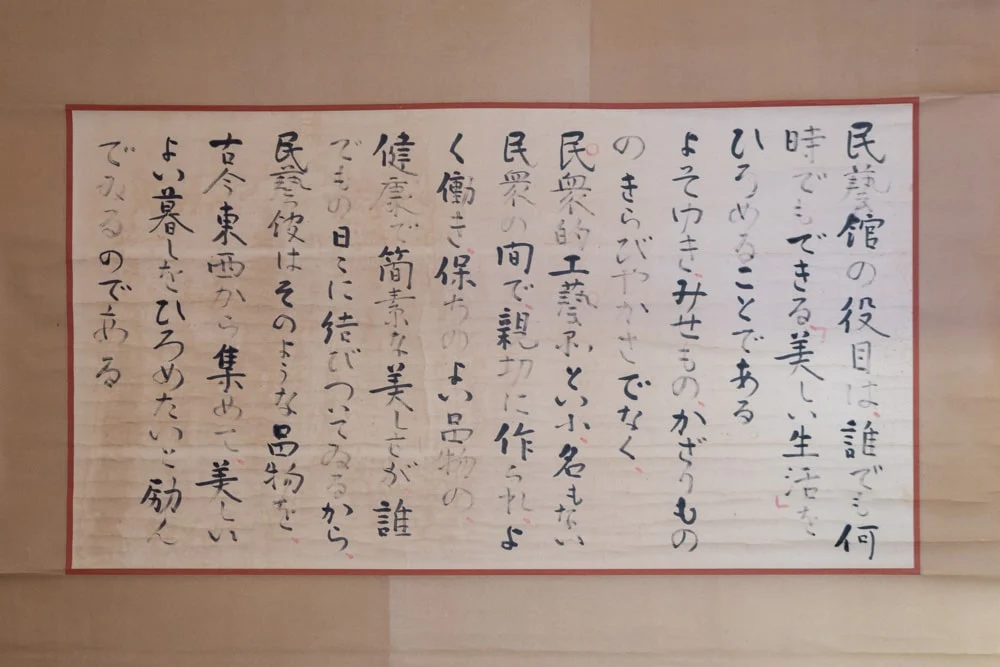 民藝館の役目は、誰でも何
時でもできる「美しい生活を」
ひろめることである。
よそゆき、みせもの、かざりもの
のきらびやかさでなく、
民衆的工藝品といふ、名もない
民衆の間で、親切に作られ、よ
く働き、保ちのよい品物の、
健康で簡素な美しさが誰
でもの日々に結びついてゐるから、
民藝館はそのような品物を、
古今東西から集めて、美しい
よい暮しをひろめたいと励ん
でゐるのである